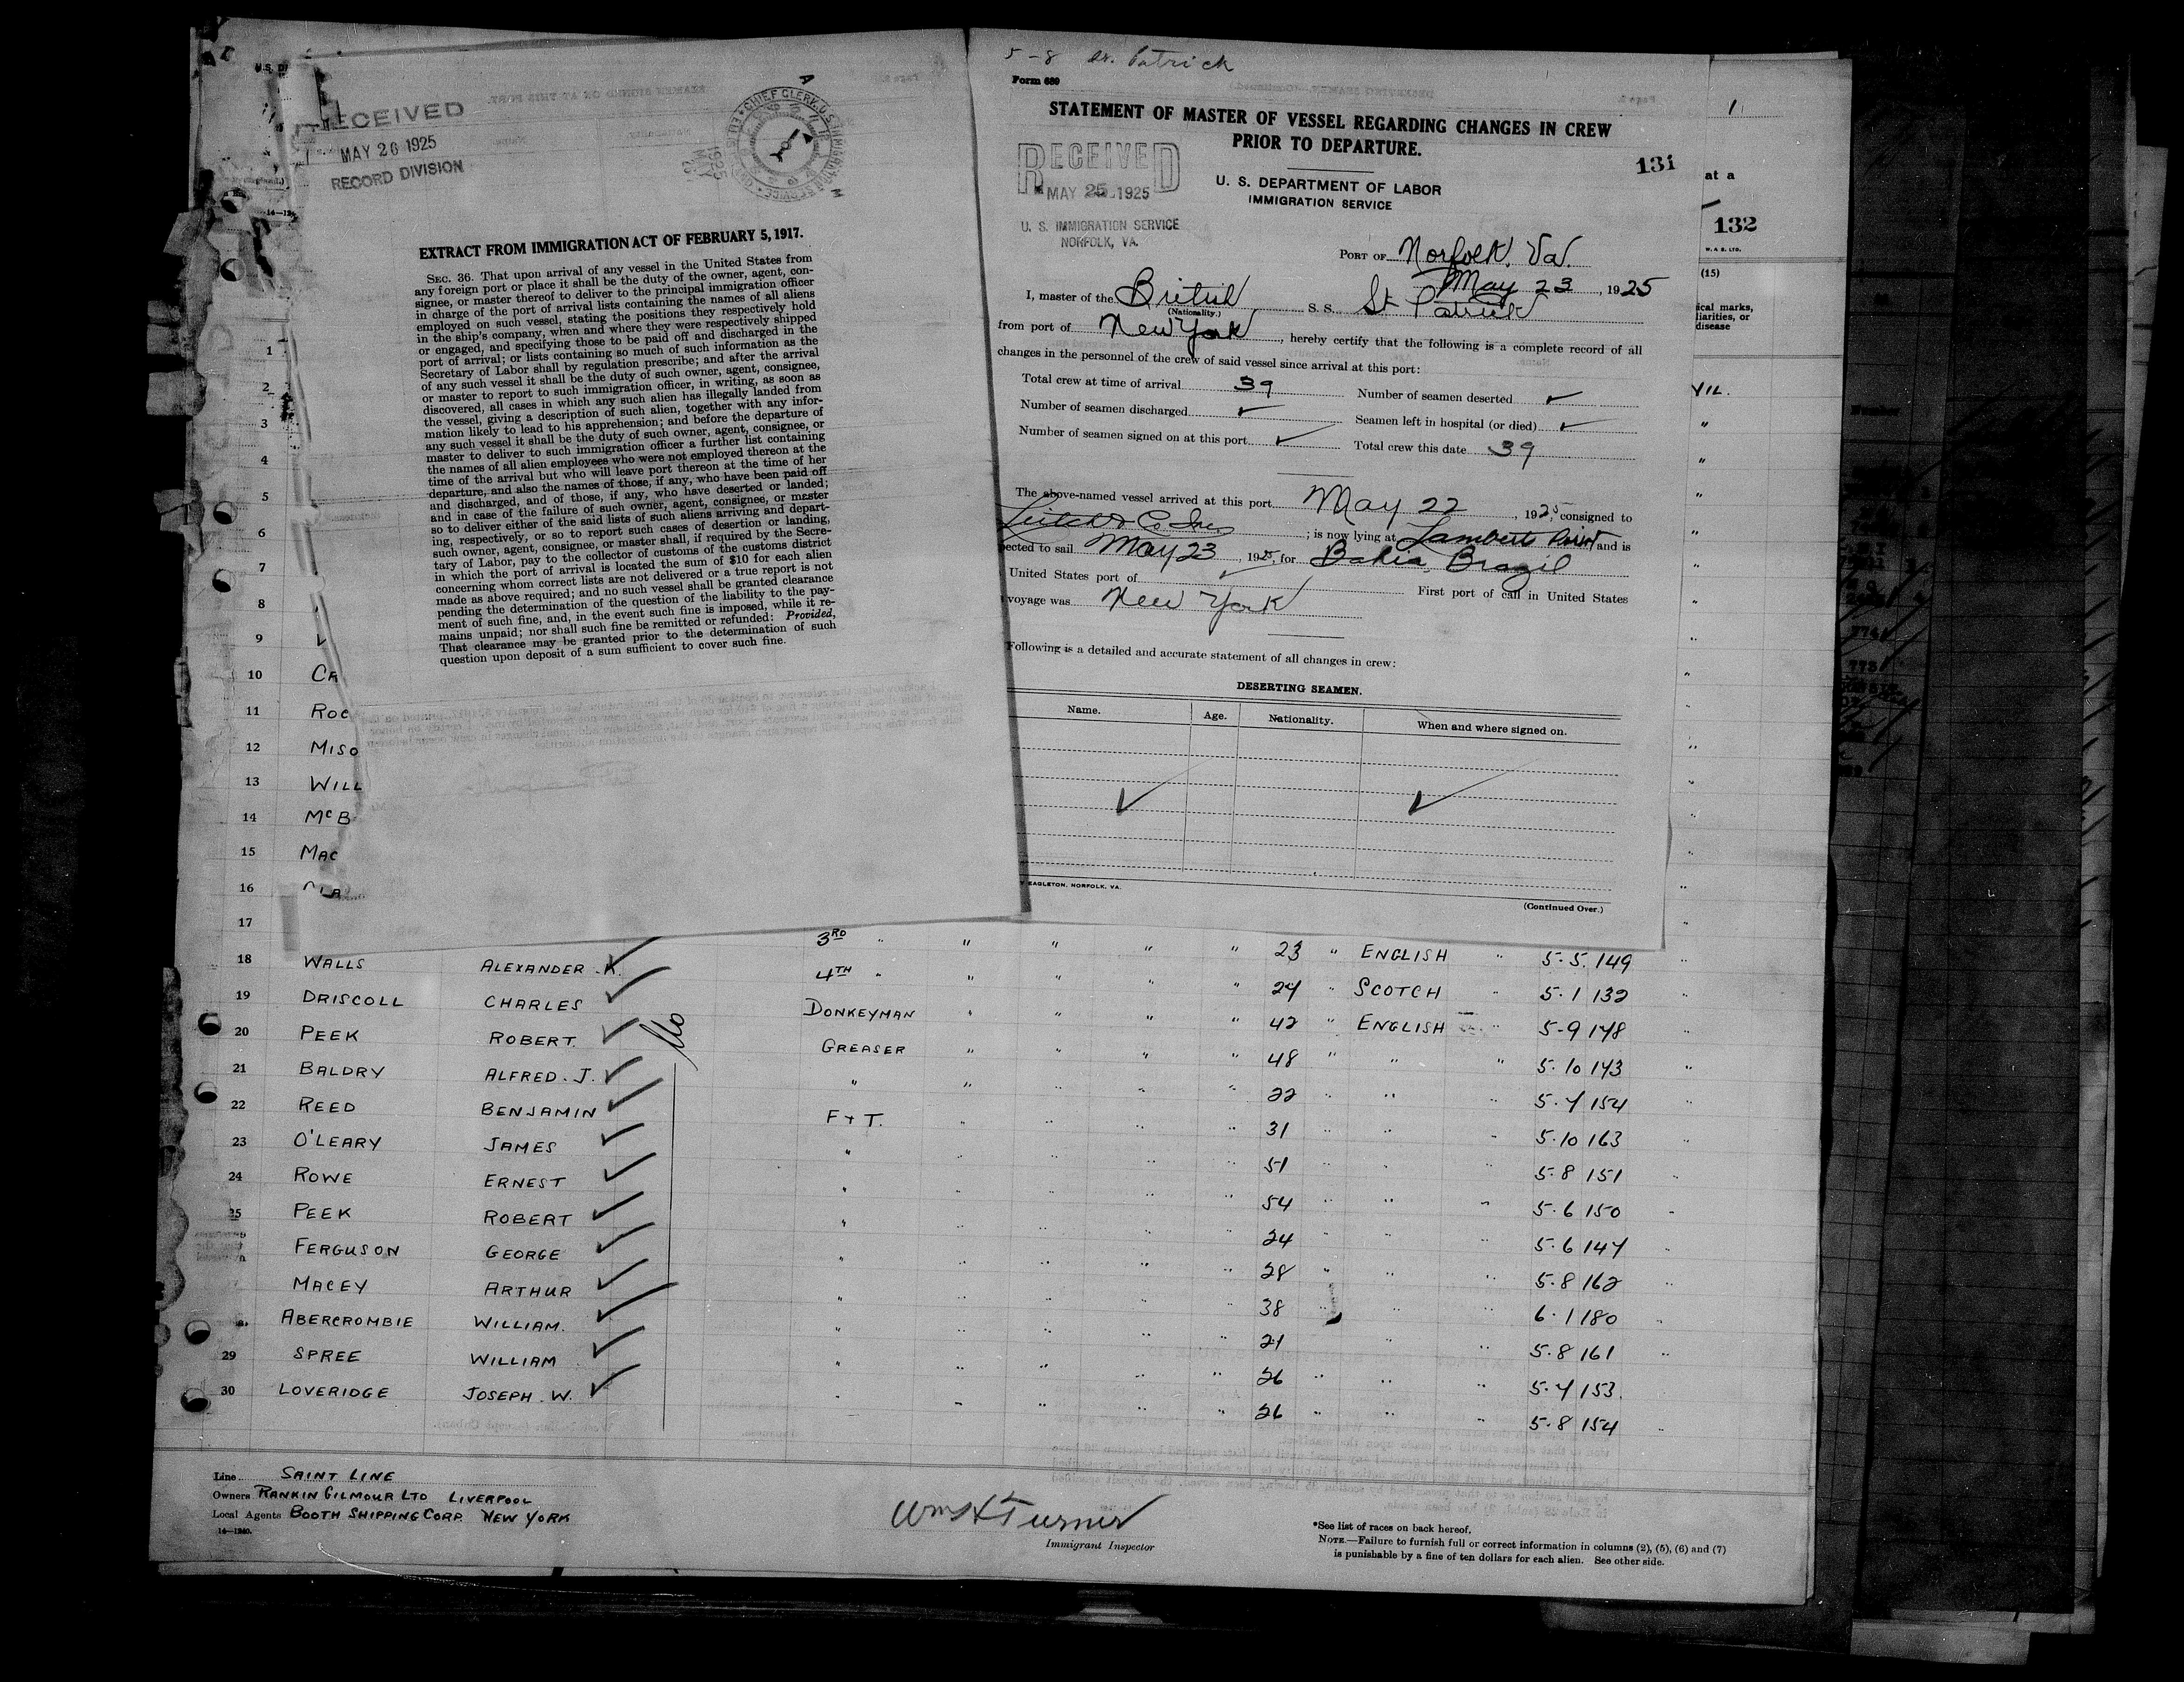 RECEIVED
MAY 26 1925
RECORD DIVISION
EXTRACT FROM IMMIGRATION ACT OF FEBRUARY 5, 1917.
SEC. 36. That upon arrival of any vessel in the United States from
any foreign port or place it shall be the duty of the owner, agent, con-
signee, or master thereof to deliver to the principal immigration officer
in charge of the port of arrival lists containing the names of all aliens
employed on such vessel, stating the positions they respectively hold
in the ship's company, when and where they were respectively shipped
or engaged, and specifying those to be paid off and discharged in the
port of arrival; or lists containing so much of such information as the
Secretary of Labor shall by regulation prescribe; and after the arrival
of any such vessel it shall be the duty of such owner, agent, consignee,
or master to report to such immigration officer, in writing, as soon as
discovered, all cases in which any such alien has illegally landed from
the vessel, giving a description of such alien, together with any infor-
mation likely to lead to his apprehension; and before the departure of
any such vessel it shall be the duty of such owner, agent, consignee, or
master to deliver to such immigration officer a further list containing
the names of all alien employees who were not employed thereon at the
time of the arrival but who will leave port thereon at the time of her
departure, and also the names of those, if any, who have been paid off
and discharged, and of those, if any, who have deserted or landed;
and in case of the failure of such owner, agent, consignee, or master
so to deliver either of the said lists of such aliens arriving and depart-
ing, respectively, or so to report such cases of desertion or landing,
such owner, agent, consignee, or master shall, if required by the Secre-
tary of Labor, pay to the collector of customs of the customs district
in which the port of arrival is located the sum of $10 for each alien
concerning whom correct lists are not delivered or a true report is not
made as above required; and no such vessel shall be granted clearance
pending the determination of the question of the liability to the pay-
ment of such fine, and, in the event such fine is imposed, while it re-
mains unpaid; nor shall such fine be remitted or refunded: Provided,
That clearance may be granted prior to the determination of such
question upon deposit of a sum sufficient to cover such fine.
5-8 St. Patrick
Form 680
STATEMENT OF MASTER OF VESSEL REGARDING CHANGES IN CREW
PRIOR TO DEPARTURE.
131
RECEIVED
MAY 25 1925
U. S. IMMIGRATION SERVICE
NORFOLK, VA.
U. S. DEPARTMENT OF LABOR
IMMIGRATION SERVICE
PORT OF Norfolk, Va.
May 23, 1925
I, master of the British S. S. St Patrick
(Nationality.)
from port of New York, hereby certify that the following is a complete record of all
changes in the personnel of the crew of said vessel since arrival at this port:
Total crew at time of arrival 39 Number of seamen deserted ✓
Number of seamen discharged ✓ Seamen left in hospital (or died) ✓
Number of seamen signed on at this port ✓ Total crew this date 39
The above-named vessel arrived at this port May 22, 1925, consigned to
& Co Inc; is now lying at Lamberts Point and is
pected to sail May 23, 1925, for Bahia Brazil
United States port of ✓ First port of call in United States
voyage was New York
Following is a detailed and accurate statement of all changes in crew:
DESERTING SEAMEN.
Name. Age. Nationality. When and where signed on.
✓ ✓
EAGLETON, NORFOLK, VA.
(Continued Over.)
1
at a
132
W. A. S. LTD.
(15)
ical marks,
liarities, or
disease
1
2
3
4
5
6
7
8
9
10 CA
11 ROC
12 MISO
13 WILL
14 McB
15 MAC
16
17 3RD " " " " " 23 " ENGLISH " 5·5. 149
18 WALLS ALEXANDER . K. ✓ 4TH " " " 24 " SCOTCH " 5·1 132
19 DRISCOLL CHARLES ✓ DONKEYMAN " " " " 42 " ENGLISH " 5-9 148
20 PEEK ROBERT. ✓ GREASER " " " " 48 " " " 5·10 143
21 BALDRY ALFRED. J. ✓ " " " " " 22 " " " 5·4 154
22 REED BENJAMIN ✓ F + T. " " " " 31 " " " 5·10 163
23 O'LEARY JAMES ✓ " " " " " 51 " " " 5·8 151
24 ROWE ERNEST ✓ " " " " " 54 " " " 5·6 150
25 PEEK ROBERT ✓ " " " " " 24 " " " 5·6 147
FERGUSON GEORGE ✓ " " " " " 28 " " " 5·8 162
MACEY ARTHUR ✓ " " " " " 38 " " " 6·1 180
ABERCROMBIE WILLIAM. ✓ " " " " " 21 " " 5·8 161
29 SPREE WILLIAM ✓ " " " " 26 " " " 5·4 153.
30 LOVERIDGE JOSEPH. W. ✓ " " " " " 26 " " " 5·8 154
Line SAINT LINE
Owners RANKIN GILMOUR LTD LIVERPOOL
Local Agents BOOTH SHIPPING CORP. NEW YORK
14—1240.
Wm H Turner
Immigrant Inspector
*See list of races on back hereof.
NOTE.—Failure to furnish full or correct information in columns (2), (5), (6) and (7)
is punishable by a fine of ten dollars for each alien. See other side.